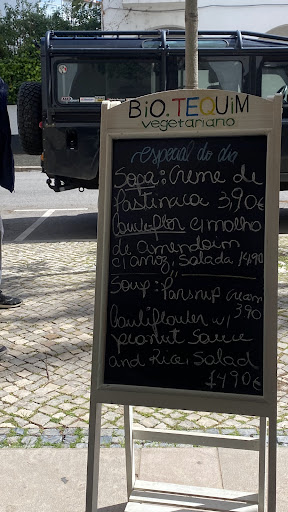 BIO.TEQUIM
vegetariano
especial do dia
Sopa: Creme de
Pastinaca 3,90€
Couveflor c/ molho
de amendoim
c/ arroz, Salada 14,90
Soup: Parsnip Cream
3,90
Cauliflower w/
peanut Sauce
and Rice, Salad
14,90€